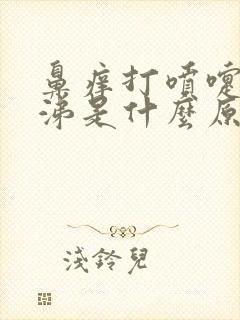 鼻痒打噴嚏
涕是什麼原
淺鈴兒